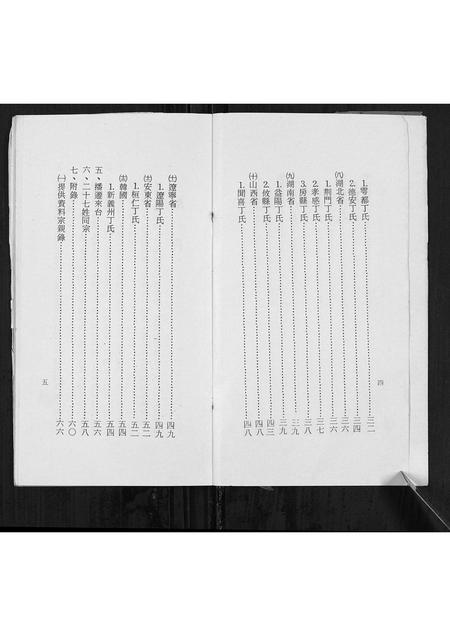 1.雩都丁氏……三二
2.德安丁氏……三四
㈧湖北省……三六
1.荆門丁氏……三六
2.孝感丁氏……三七
3.房縣丁氏……三八
㈨湖南省……三九
1.益陽丁氏……三九
2.攸縣丁氏……四三
㈩山西省……四八
1.聞喜丁氏……四八
四
遼寧省……四九
1.遼陽丁氏……四九
安東省……五二
1.桓仁丁氏……五二
韓國……五四
1.新義州丁氏……五四
五、播遷來台……五六
六、二十七姓同宗……五八
七、附錄……六〇
㈠提供資料宗親錄……六六
五